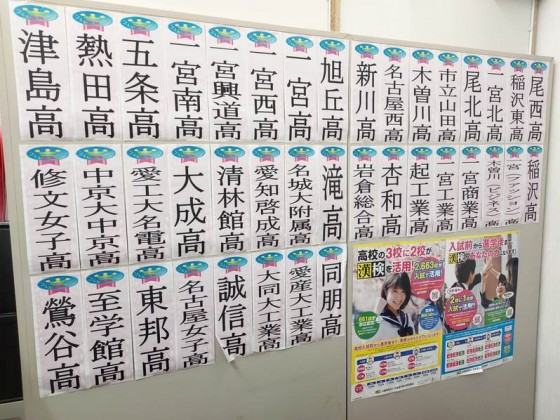 旭丘高
一宮高
一宮西高
一宮興道高
一宮南高
五条高
熱田高
津島高
滝高
名城大附属高
愛知啓成高
清林館高
大成高
愛工大名電高
中京大中京高
修文女子高
同朋高
愛産大工業高
大同大工業高
誠信高
名古屋女子高
東邦高
至学館高
鶯谷高
尾西高
稲沢東高
一宮北高
尾北高
市立山田高
木曽川高
名古屋西高
新川高
稲沢高
一宮(ファッション)高
木曽川(ビジネス)高
一宮商業高
一宮工業高
起工業高
杏和高
岩倉総合高
高校の3校に2校が
漢検を活用
2,663校が
入試で活用!
入試前から進学後まで
漢検
2校に1校が
入試で活用!